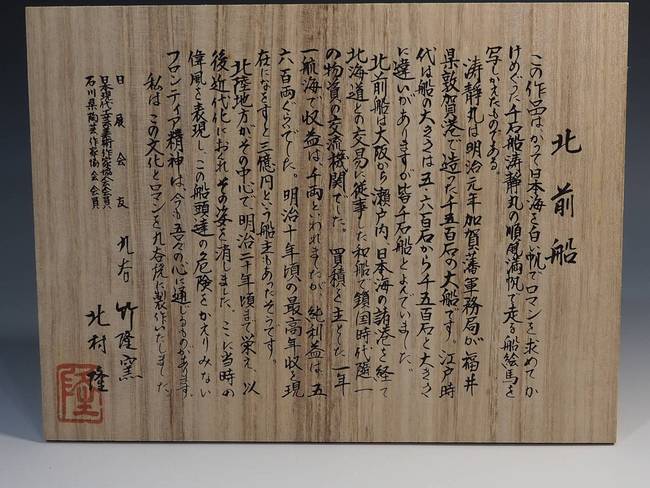 北前船
この作品は、かつて日本海を白い帆でロマンを求めてか
けめぐった千石船涛静丸の順風満帆で走る船絵馬を
写しかえたものである。
涛静丸は明治元年加賀藩軍務局が福井
県敦賀港で造った千五百石の大船です。江戸時
代は船の大きさは五・六百石から千五百石と大きさ
に違いがありますが皆千石船とよんでいました。
北前船は大阪から瀬戸内、日本海の諸港を経て
北海道との交易に従事した和船で鎖国時代随一
の物資の交流機関でした。買積を主とした一年
一航海で収益は、千両といわれてましたが、純利益は、五、
六百両ぐらいでした。明治十年頃の最高年収を現
在になをすと三億円という船主もあったそうです。
北陸地方がその中心で、明治二十年頃まで栄え、以
後近代化におされその姿を消しました。ここに当時の
偉風を表現し、この船頭達の危険をかえりみない
フロンティア精神は、今も吾々の心に通じるものがあります。
私はこの文化とロマンを九谷焼に製作いたしました
日展会友
日本現代工芸美術作家協会会員
石川県陶芸作家協会会員
九谷 竹隆窯
北村隆
隆